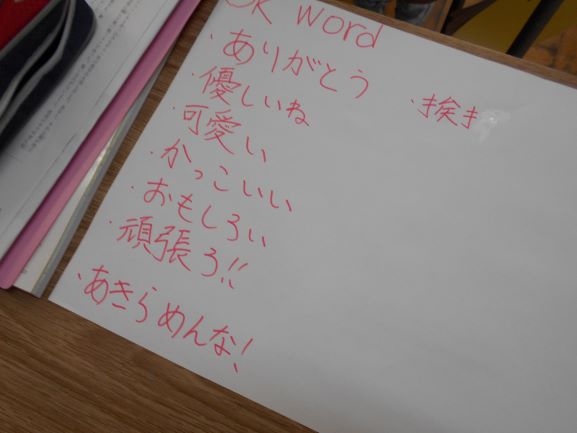 OK word
・ありがとう
・優しいね
・可愛い
・かっこいい
・おもしろい
・頑張ろ!!
・あきらめんな!
・挨拶